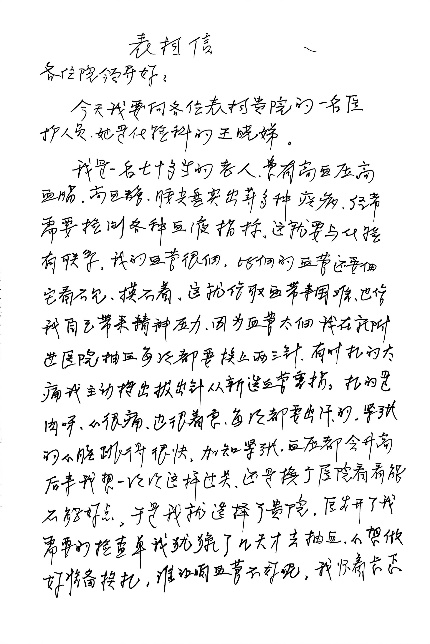 表扬信
各位院领导好：
今天我要向各位表扬贵院的一名医
护人员，她是化验科的王晓娣。
我是一名七十多岁的老人，患有高血压高
血脂、高血糖、腰突等多种疾病，经常
需要检测各种血液指标，这就要与化验
有联系，我的血管很细，比细的血管还要细
它看不见、摸不着，这就给取血带来困难，也给
我自己带来精神压力，因为血管太细我在就近
医院抽血每次都要挨上两三针，有时扎的太
痛我主动提出拔出针从新选血管重扎，扎的是
肉呀，人很痛，也很着急，每次都要出汗的，紧张
的心脏跳得很快，加知紧张，血压都会升高
后来我想一次次这样过关，还是换个医院看看能
不能好点，于是我就选择了贵院，医生开了我
需要的检查单我犹豫了几天才去抽血，心想做
好准备挨扎，谁让咱血管不好呢，我怀着忐忑